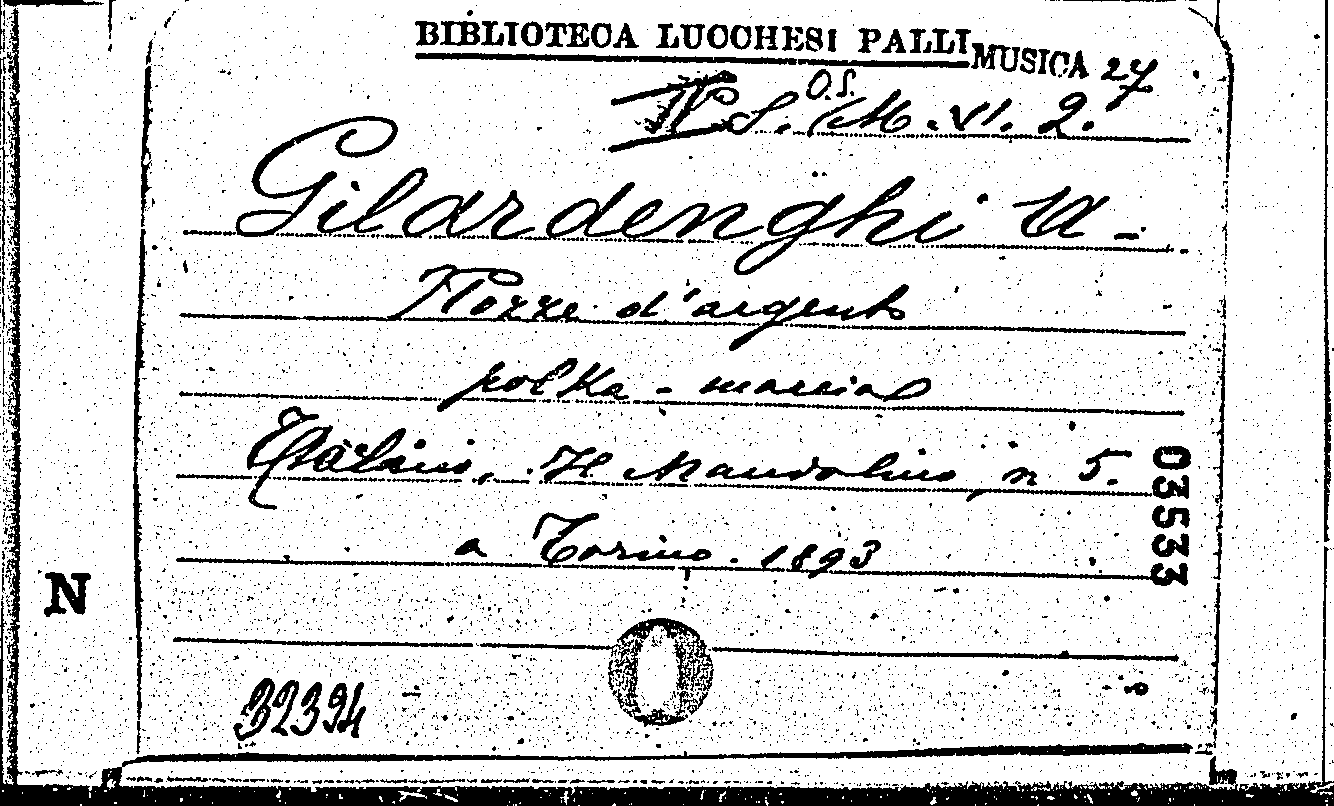 BIBLIOTECA LUCCHESI PALLI MUSICA 27
O.S.
S. M. VI. 2.
Gilardenghi A -
Nozze d'argento
polka - marcia
Il Mandolino, n 5.
a Torino. 1893
03533
N
32394